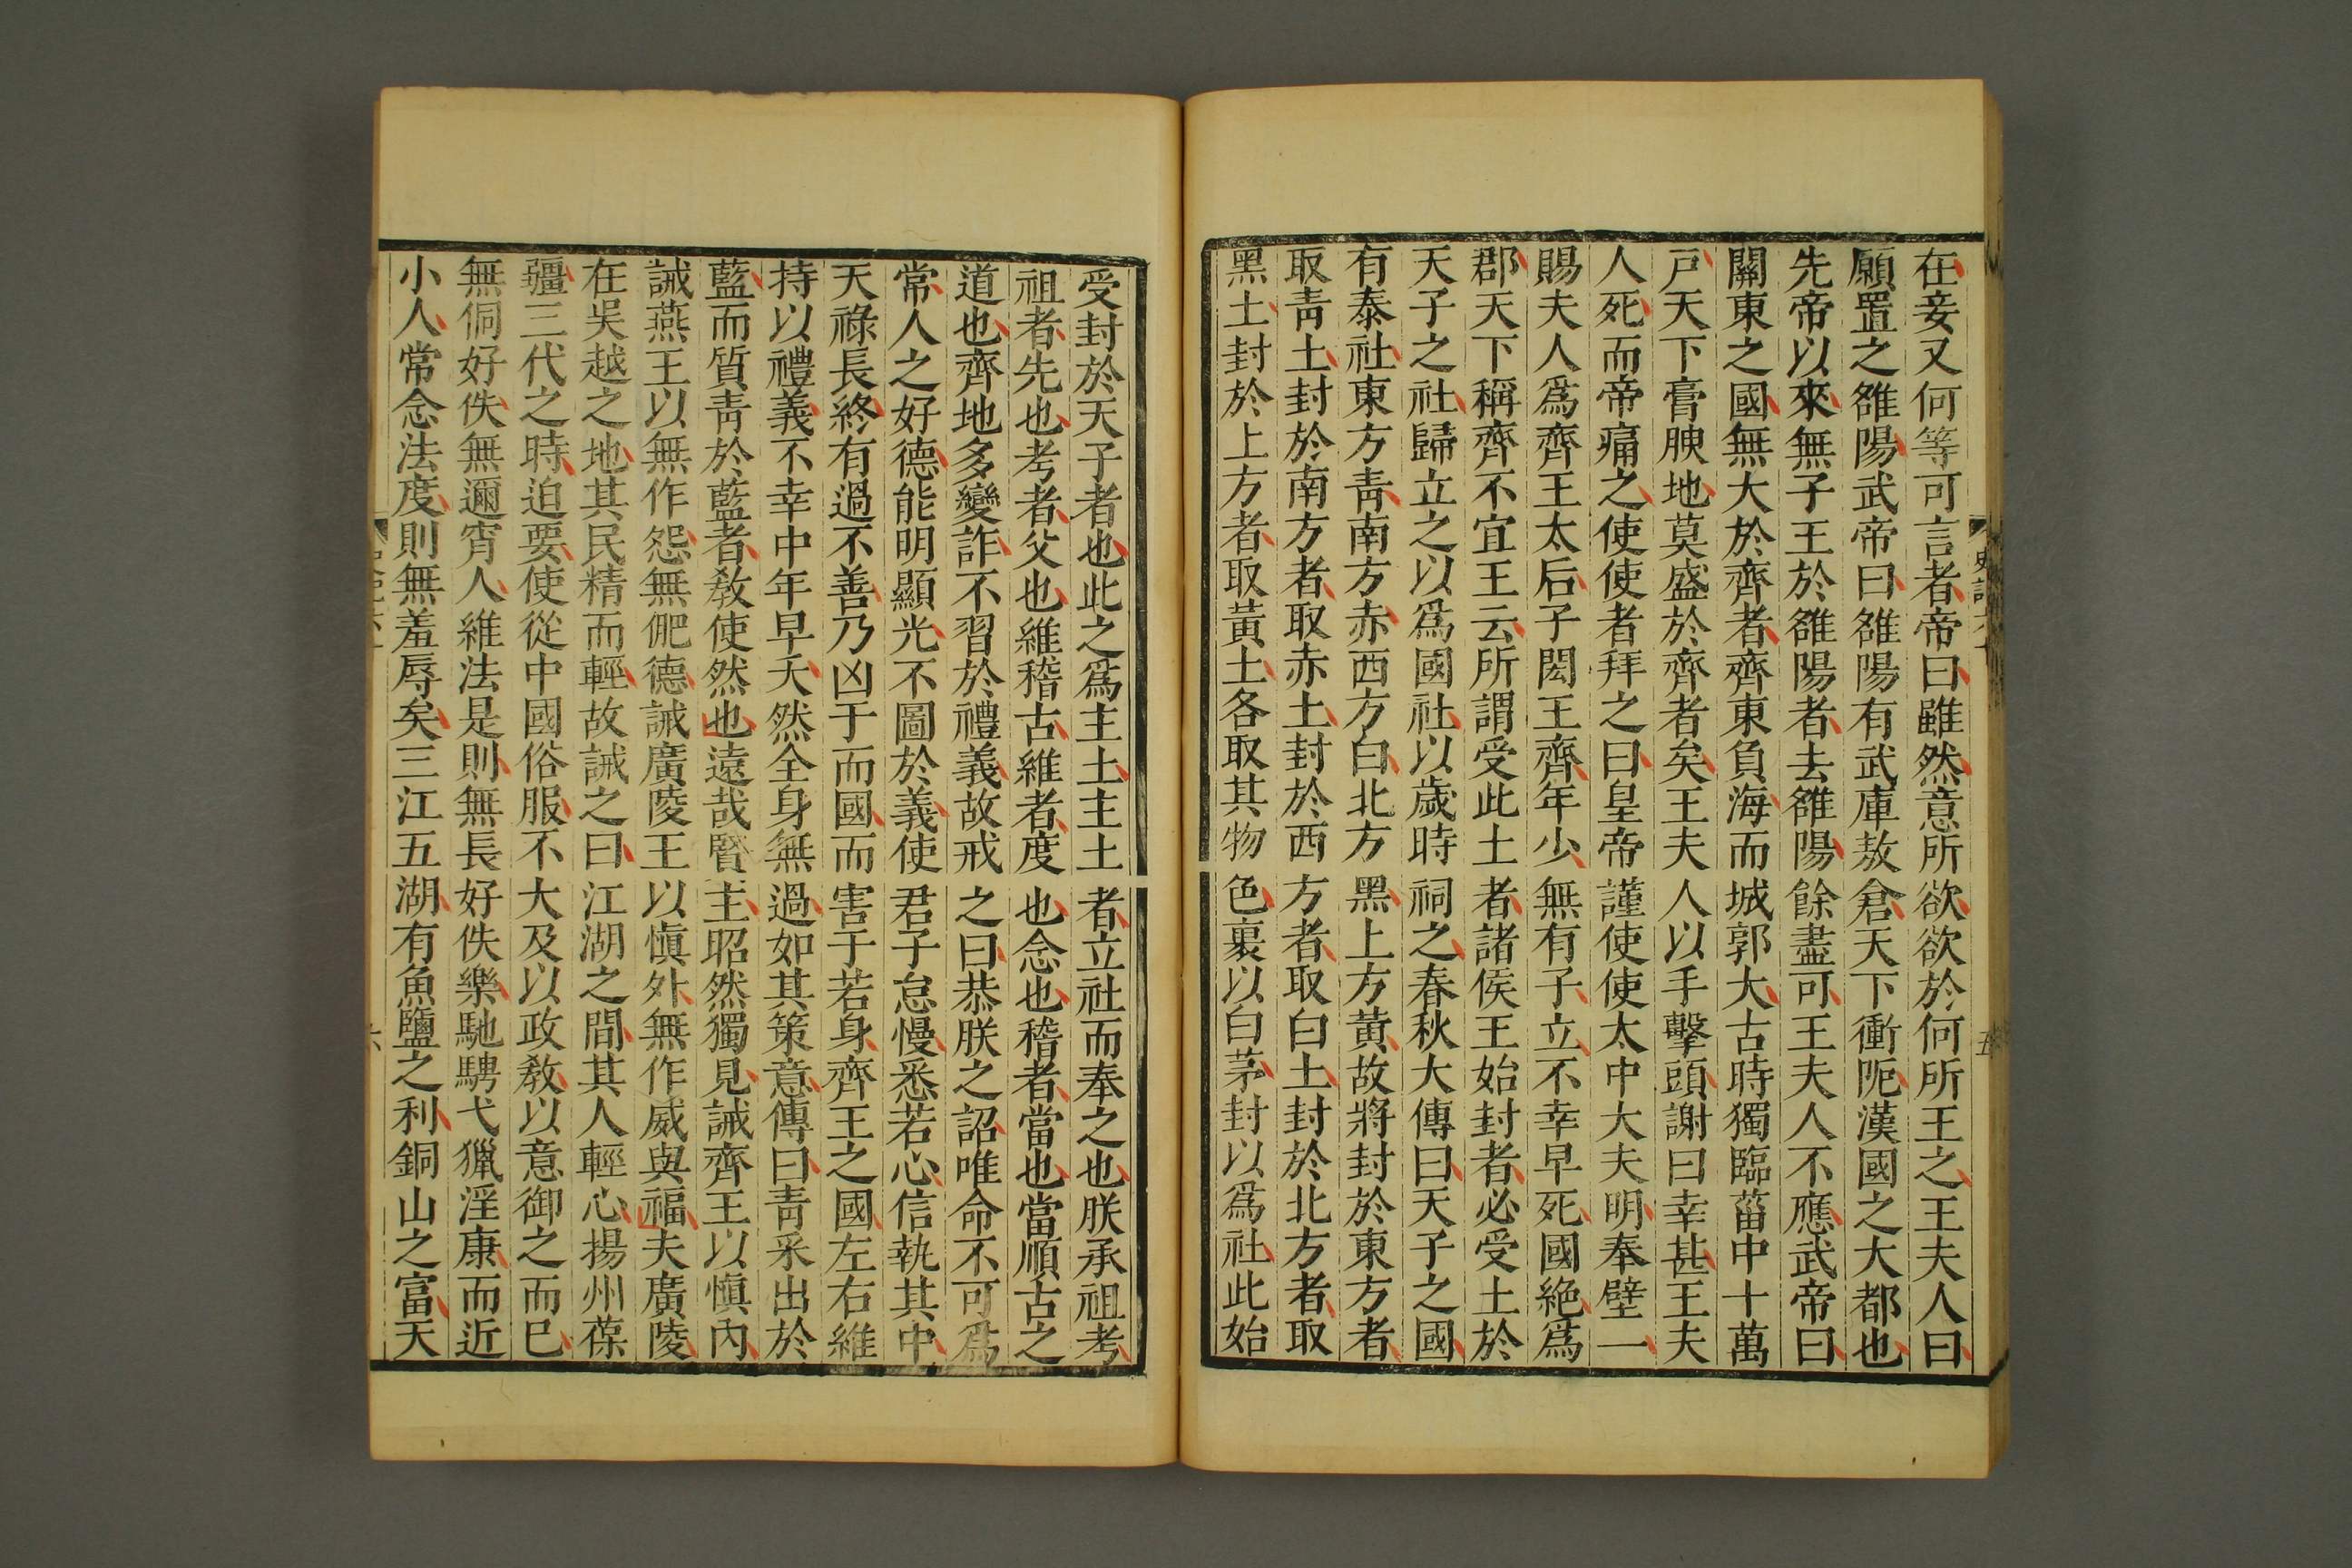 在妾又何等可言者帝曰雖然意所欲欲於何所王之王夫人曰
願置之雒陽武帝曰雒陽有武庫敖倉天下衝阨漢國之大都也
先帝以來無子王於雒陽者去雒陽餘盡可王夫人不應武帝曰
關東之國無大於齊者齊東負海而城郭大古時獨臨菑中十萬
戸天下膏腴地莫盛於齊者矣王夫人以手擊頭謝曰幸甚王夫
人死而帝痛之使使者拜之曰皇帝謹使使太中大夫明奉璧一
賜夫人爲齊王太后子閎王齊年少無有子立不幸早死國絶爲
郡天下稱齊不宜王云所謂受此土者諸侯王始封者必受土於
天子之社歸立之以爲國社以歲時祠之春秋大傳曰天子之國
有泰社東方靑南方赤西方白北方黑上方黃故將封於東方者
取靑土封於南方者取赤土封於西方者取白土封於北方者取
黑土封於上方者取黃土各取其物色裹以白茅封以爲社此始
史記六十
五
受封於天子者也此之爲主土主土者立社而奉之也朕承祖考
祖者先也考者父也維稽古維者度也念也稽者當也當順古之
道也齊地多變詐不習於禮義故戒之曰恭朕之詔唯命不可爲
常人之好德能明顯光不圖於義使君子怠慢悉若心信執其中
天祿長終有過不善乃凶于而國而害于若身齊王之國左右維
持以禮義不幸中年早夭然全身無過如其策意傳曰靑采出於
藍而質靑於藍者敎使然也遠哉賢主昭然獨見誡齊王以愼內
誡燕王以無作怨無俷德誡廣陵王以愼外無作威與福夫廣陵
在吳越之地其民精而輕故誡之曰江湖之間其人輕心揚州葆
疆三代之時迫要使從中國俗服不大及以政敎以意御之而已
無侗好佚無邇宵人維法是則無長好佚樂馳騁弋獵淫康而近
小人常念法度則無羞辱矣三江五湖有魚鹽之利銅山之富天